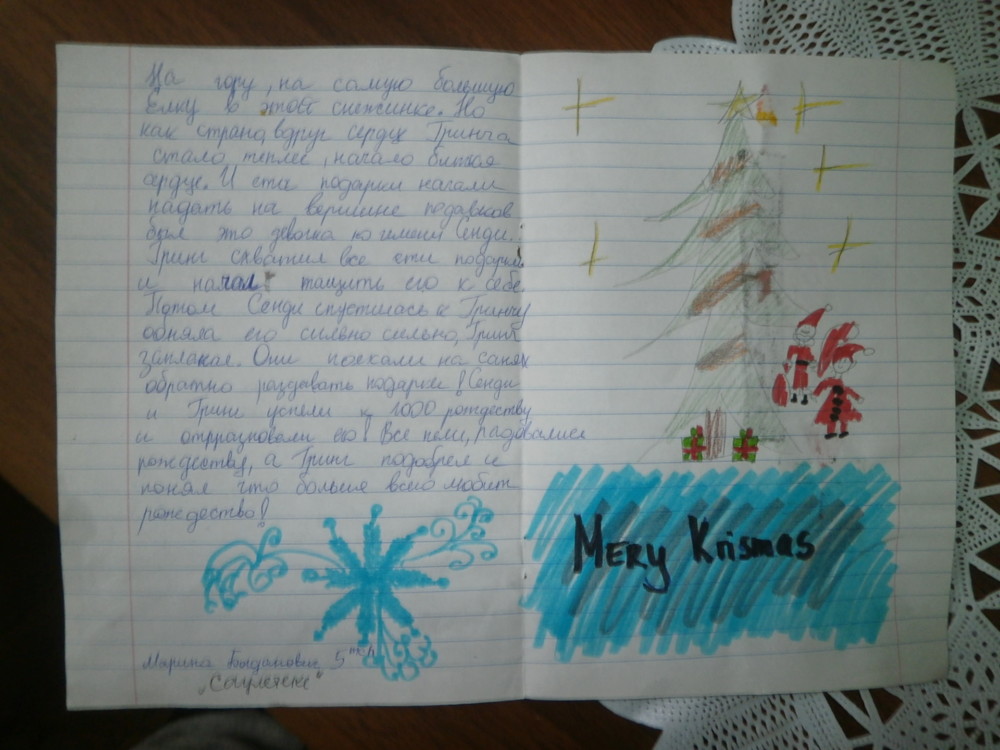 На гору, на самую большую
ёлку в этой снежинке. Но
как странно, вдруг сердце Гринча
стало теплее, начало биться
сердце. И эти подарки начали
падать на вершине подарков
был это девочка по имени Сенди.
Гринч схватил все эти подарки
и начал тащить его к себе
Потом Сенди спустилась к Гринчу
обняла его сильно сильно, Гринч
заплакал. Они поехали на санях
обратно раздавать подарки! Сенди
и Гринч успели к 1000 рождеству
и отпразновали его! Все пели, радовались
рождеству, а Гринч подобрел и
понял что больше всего любит
рождество!
Марина 5
MERY Krismas